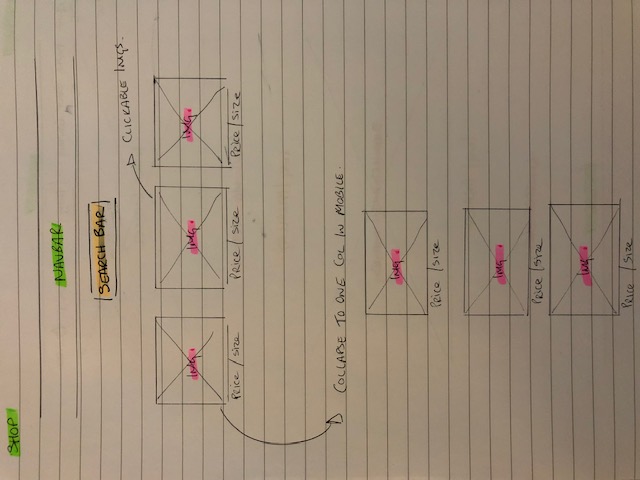 SHOP
NAVBAR
SEARCH BAR
CLICKABLE IMGS.
IMG. IMG. IMG.
PRICE / SIZE PRICE / SIZE PRICE / SIZE
COLLAPSE TO ONE COL IN MOBILE.
IMG.
PRICE / SIZE
IMG.
PRICE / SIZE
IMG.
PRICE / SIZE